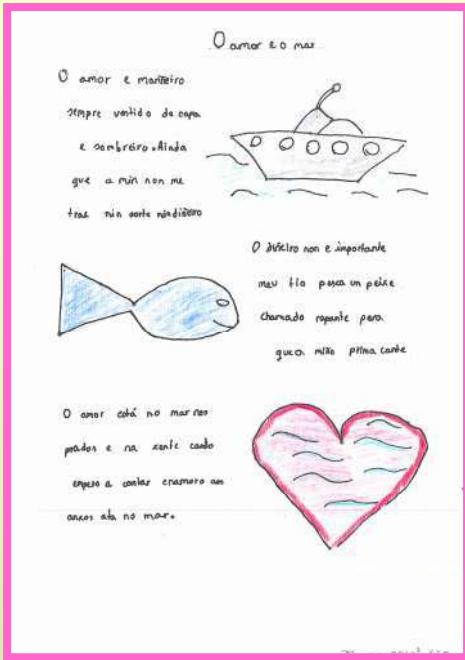 O amor e o mar
O amor e mariñeiro
sempre vestido de capa
e sombreiro. Ainda
que a min non me
trae nin sorte nin diñeiro
O diñeiro non e importante
meu tio pesca un peixe
chamado rapante para
que a miña prima cante
O amor está no mar nos
prados e na xente cando
empezo a cantar enamoro aos
anxos ata no mar.